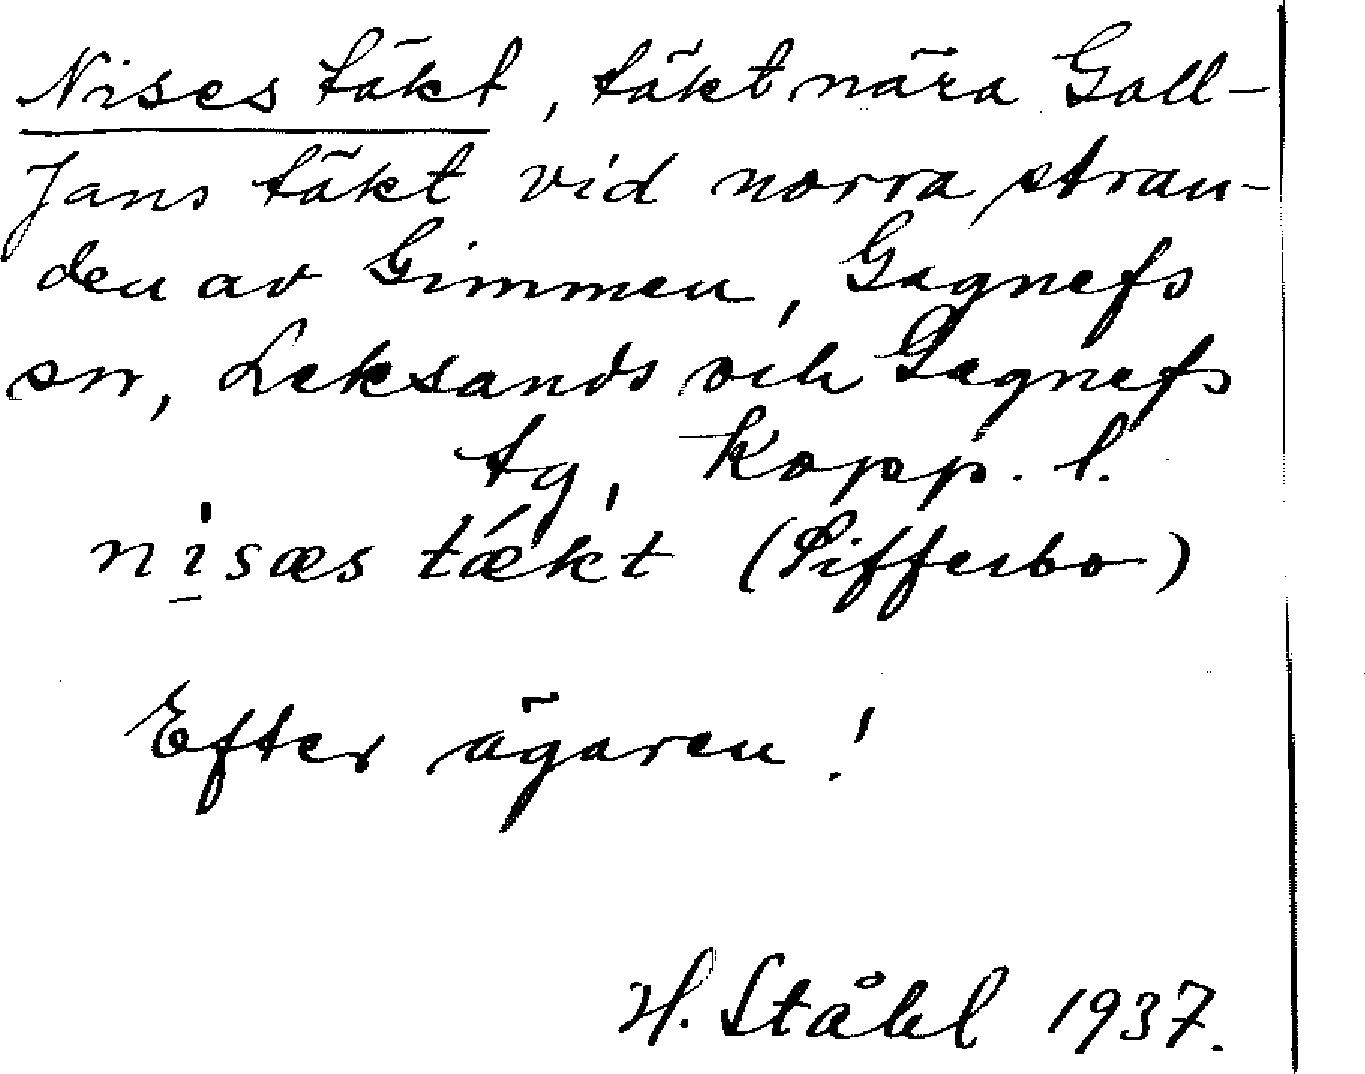 Nises täkt, täkt nära Goll-
Jans täkt vid norra stran-
den av Gimmen, Gagnefs
sn, Leksands och Gagnefs
tg, Kopp. l.
nisæs tǽkt (Sifferbo)
Efter ägaren!
H. Ståhl 1937.